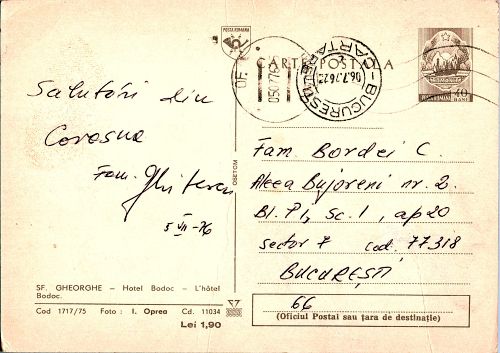 POSTA ROMANA
CARTE POSTALA
40
BANI
OF.
05.07.76
BUCURESTI
CARTARE
06.7.76.22
Salutări din
Covasna
Fam.
5 VII - 76
SF. GHEORGHE – Hotel Bodoc – L'hôtel
Bodoc.
Cod 1717/75 Foto : I. Oprea Cd. 11034
Lei 1,90
OBETCM
Fam. Bordei C.
Aleea Bujoreni nr. 2.
Bl. P1, sc. 1, ap 20
sector 7 cod. 77318
BUCUREȘTI
66
(Oficiul Postal sau țara de destinație)